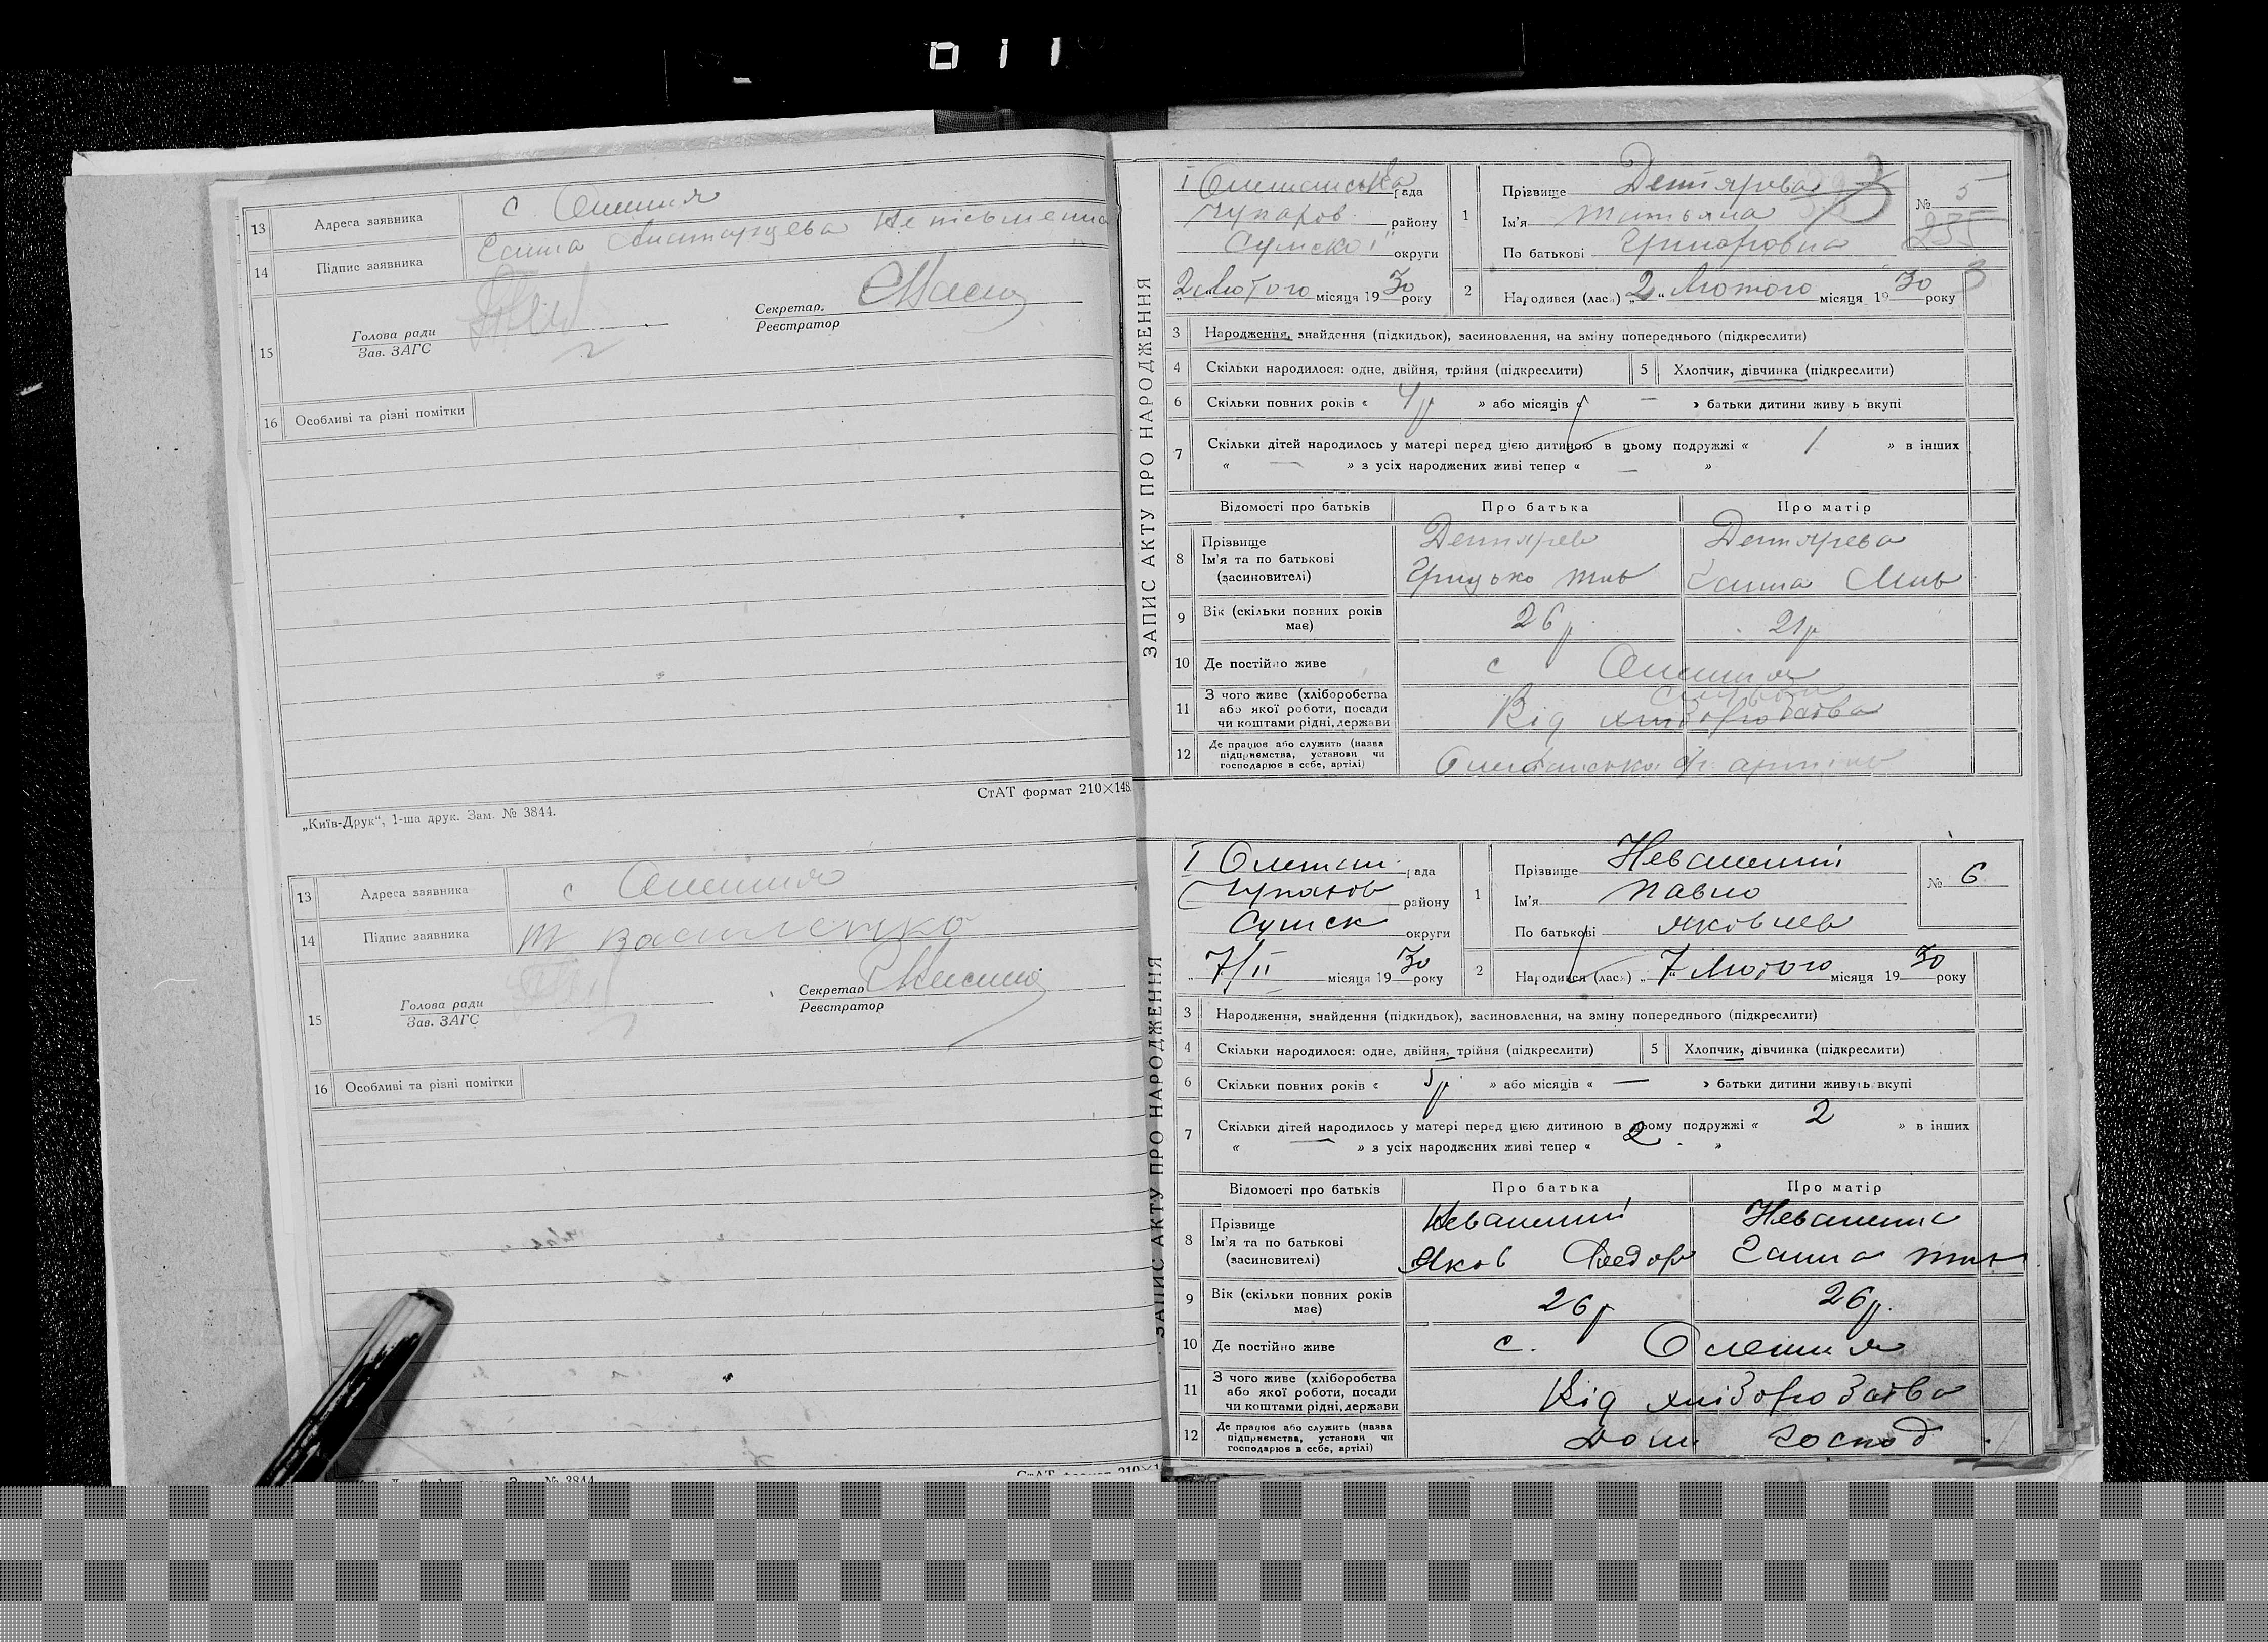 011
13 Адреса заявника с Олешня
14 Підпис заявника Ганна
15 Голова ради
Зав. ЗАГС
Секретар.
Реєстратор
16 Особливі та різні помітки
СтАТ формат 210×148.
„Київ-Друк“, 1-ша друк. Зам. № 3844.
13 Адреса заявника с Олешня
14 Підпис заявника
15 Голова ради
Зав. ЗАГС
Секретар
Реєстратор
16 Особливі та різні помітки
ЗАПИС АКТУ ПРО НАРОДЖЕННЯ
І Олешанська рада
Чупахов. району
Сумської округи
2 Лютого місяця 1930 року
1 Прізвище Дегтярева
Ім'я Татьяна
По батькові Григоровна
№ 5
235
2 Народився (лась) „2“ Лютого місяця 1930 року
3 Народження, знайдення (підкидьок), засиновлення, на зміну попереднього (підкреслити)
4 Скільки народилося: одне, двійня, трійня (підкреслити)
5 Хлопчик, дівчинка (підкреслити)
6 Скільки повних років « 4 р » або місяців « — » батьки дитини живуть вкупі
7 Скільки дітей народилось у матері перед цією дитиною в цьому подружжі « 1 » в інших
« — » з усіх народжених живі тепер « — »
Відомості про батьків Про батька Про матір
8 Прізвище Дегтярев Дегтярева
Ім'я та по батькові Грицько Ганна
(засиновителі)
9 Вік (скільки повних років має) 26 р. 21 р
10 Де постійно живе с Олешня
11 З чого живе (хліборобства або якої роботи, посади чи коштами рідні, держави Від хліборобства
12 Де працює або служить (назва підприємства, установи чи господарює в себе, артілі)
ЗАПИС АКТУ ПРО НАРОДЖЕННЯ
І Олешан. рада
Чупахов району
Сумск округи
„ 7/II місяця 1930 року
1 Прізвище
Ім'я Павло
По батькові Яковлев
№ 6
2 Народився (лась) „7“ Лютого місяця 1930 року
3 Народження, знайдення (підкидьок), засиновлення, на зміну попереднього (підкреслити)
4 Скільки народилося: одне, двійня, трійня (підкреслити)
5 Хлопчик, дівчинка (підкреслити)
6 Скільки повних років « 5 р. » або місяців « — » батьки дитини живуть вкупі
7 Скільки дітей народилось у матері перед цією дитиною в цьому подружжі « 2 » в інших
« — » з усіх народжених живі тепер « 2 »
Відомості про батьків Про батька Про матір
8 Прізвище
Ім'я та по батькові Яков Федор Ганна
(засиновителі)
9 Вік (скільки повних років має) 26 р 26 р.
10 Де постійно живе с. Олешня
11 З чого живе (хліборобства або якої роботи, посади чи коштами рідні, держави Від хліборобства
12 Де працює або служить (назва підприємства, установи чи господарює в себе, артілі) Дом. господ